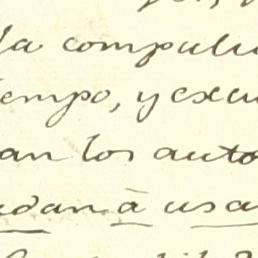 la compul
empo, y exc
an los auto
dan à usa